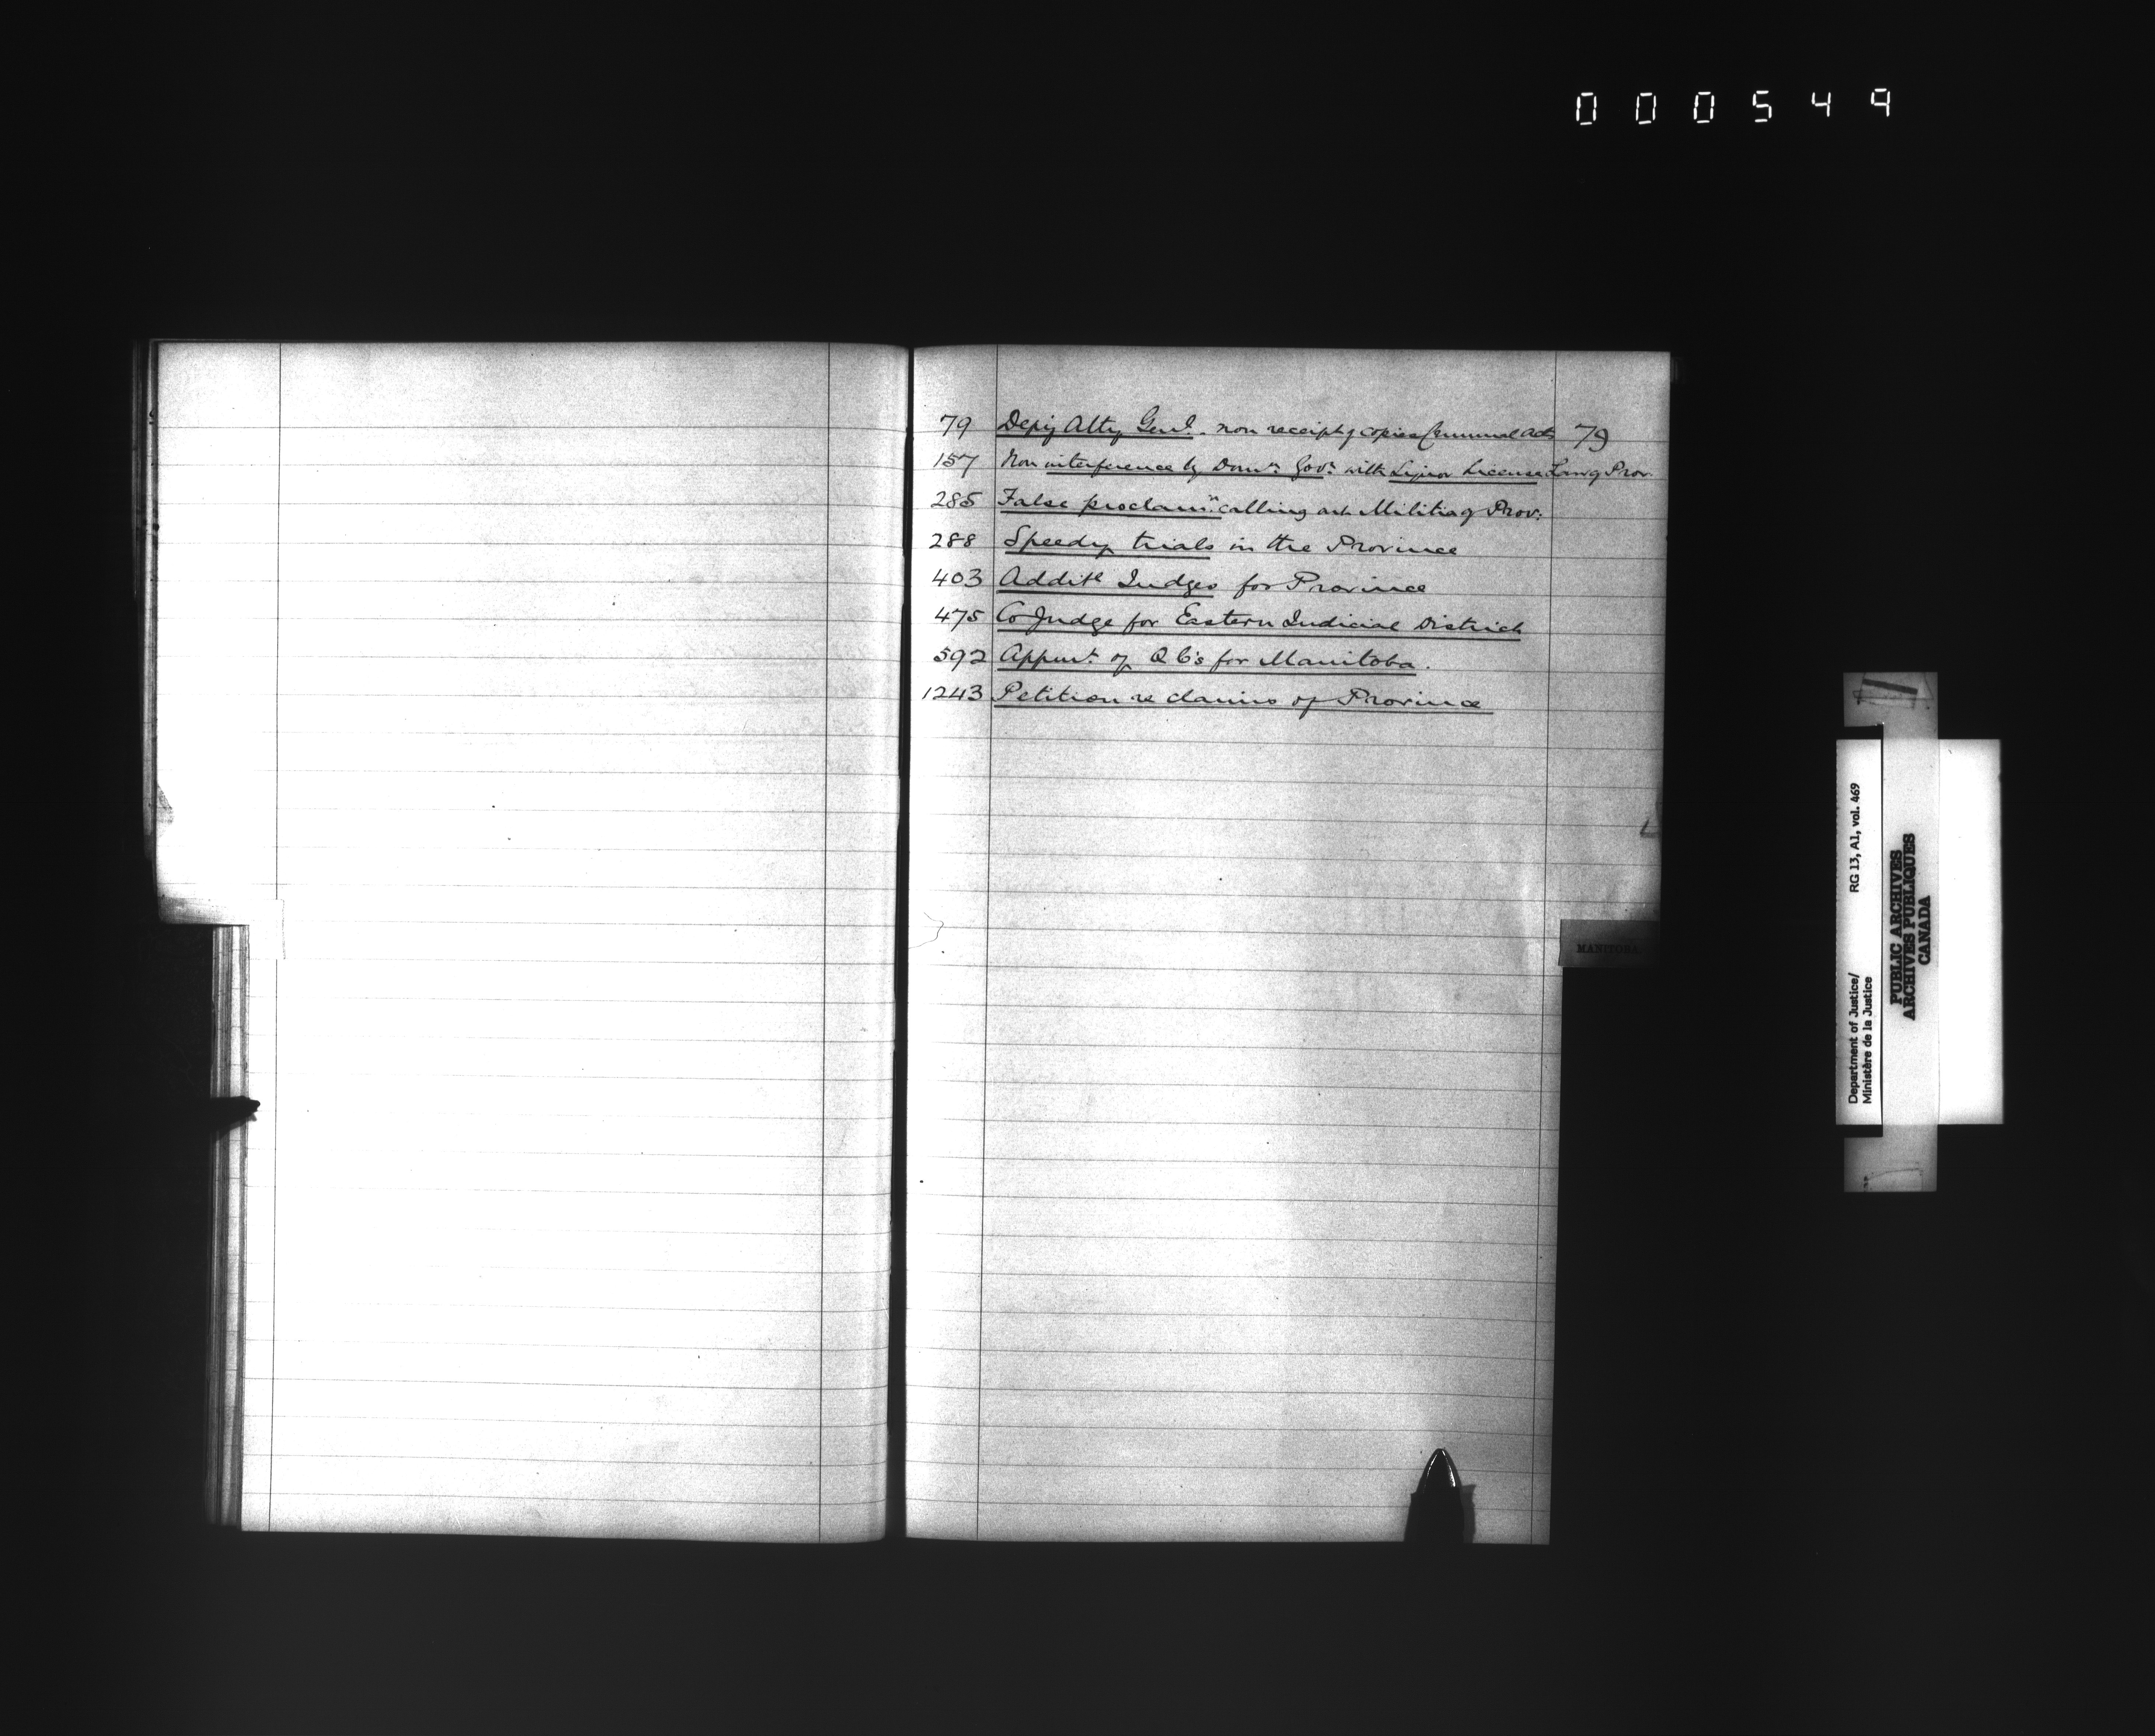 000549
79 Depy Atty Genl. non receipt of copies Criminal Acts 79
157 Non interference by Domn Govt with Liquor License Law of Prov.
285 False proclamn calling out Militia of Prov:
288 Speedy trials in the Province
403 Additl Judges for Province
475 Co Judge for Eastern Judicial District
592 Appmt of QC's for Manitoba.
1243 Petition re claims of Province
MANITOBA
Department of Justice/ RG 13, A1, vol. 469
Ministère de la Justice
PUBLIC ARCHIVES
ARCHIVES PUBLIQUES
CANADA